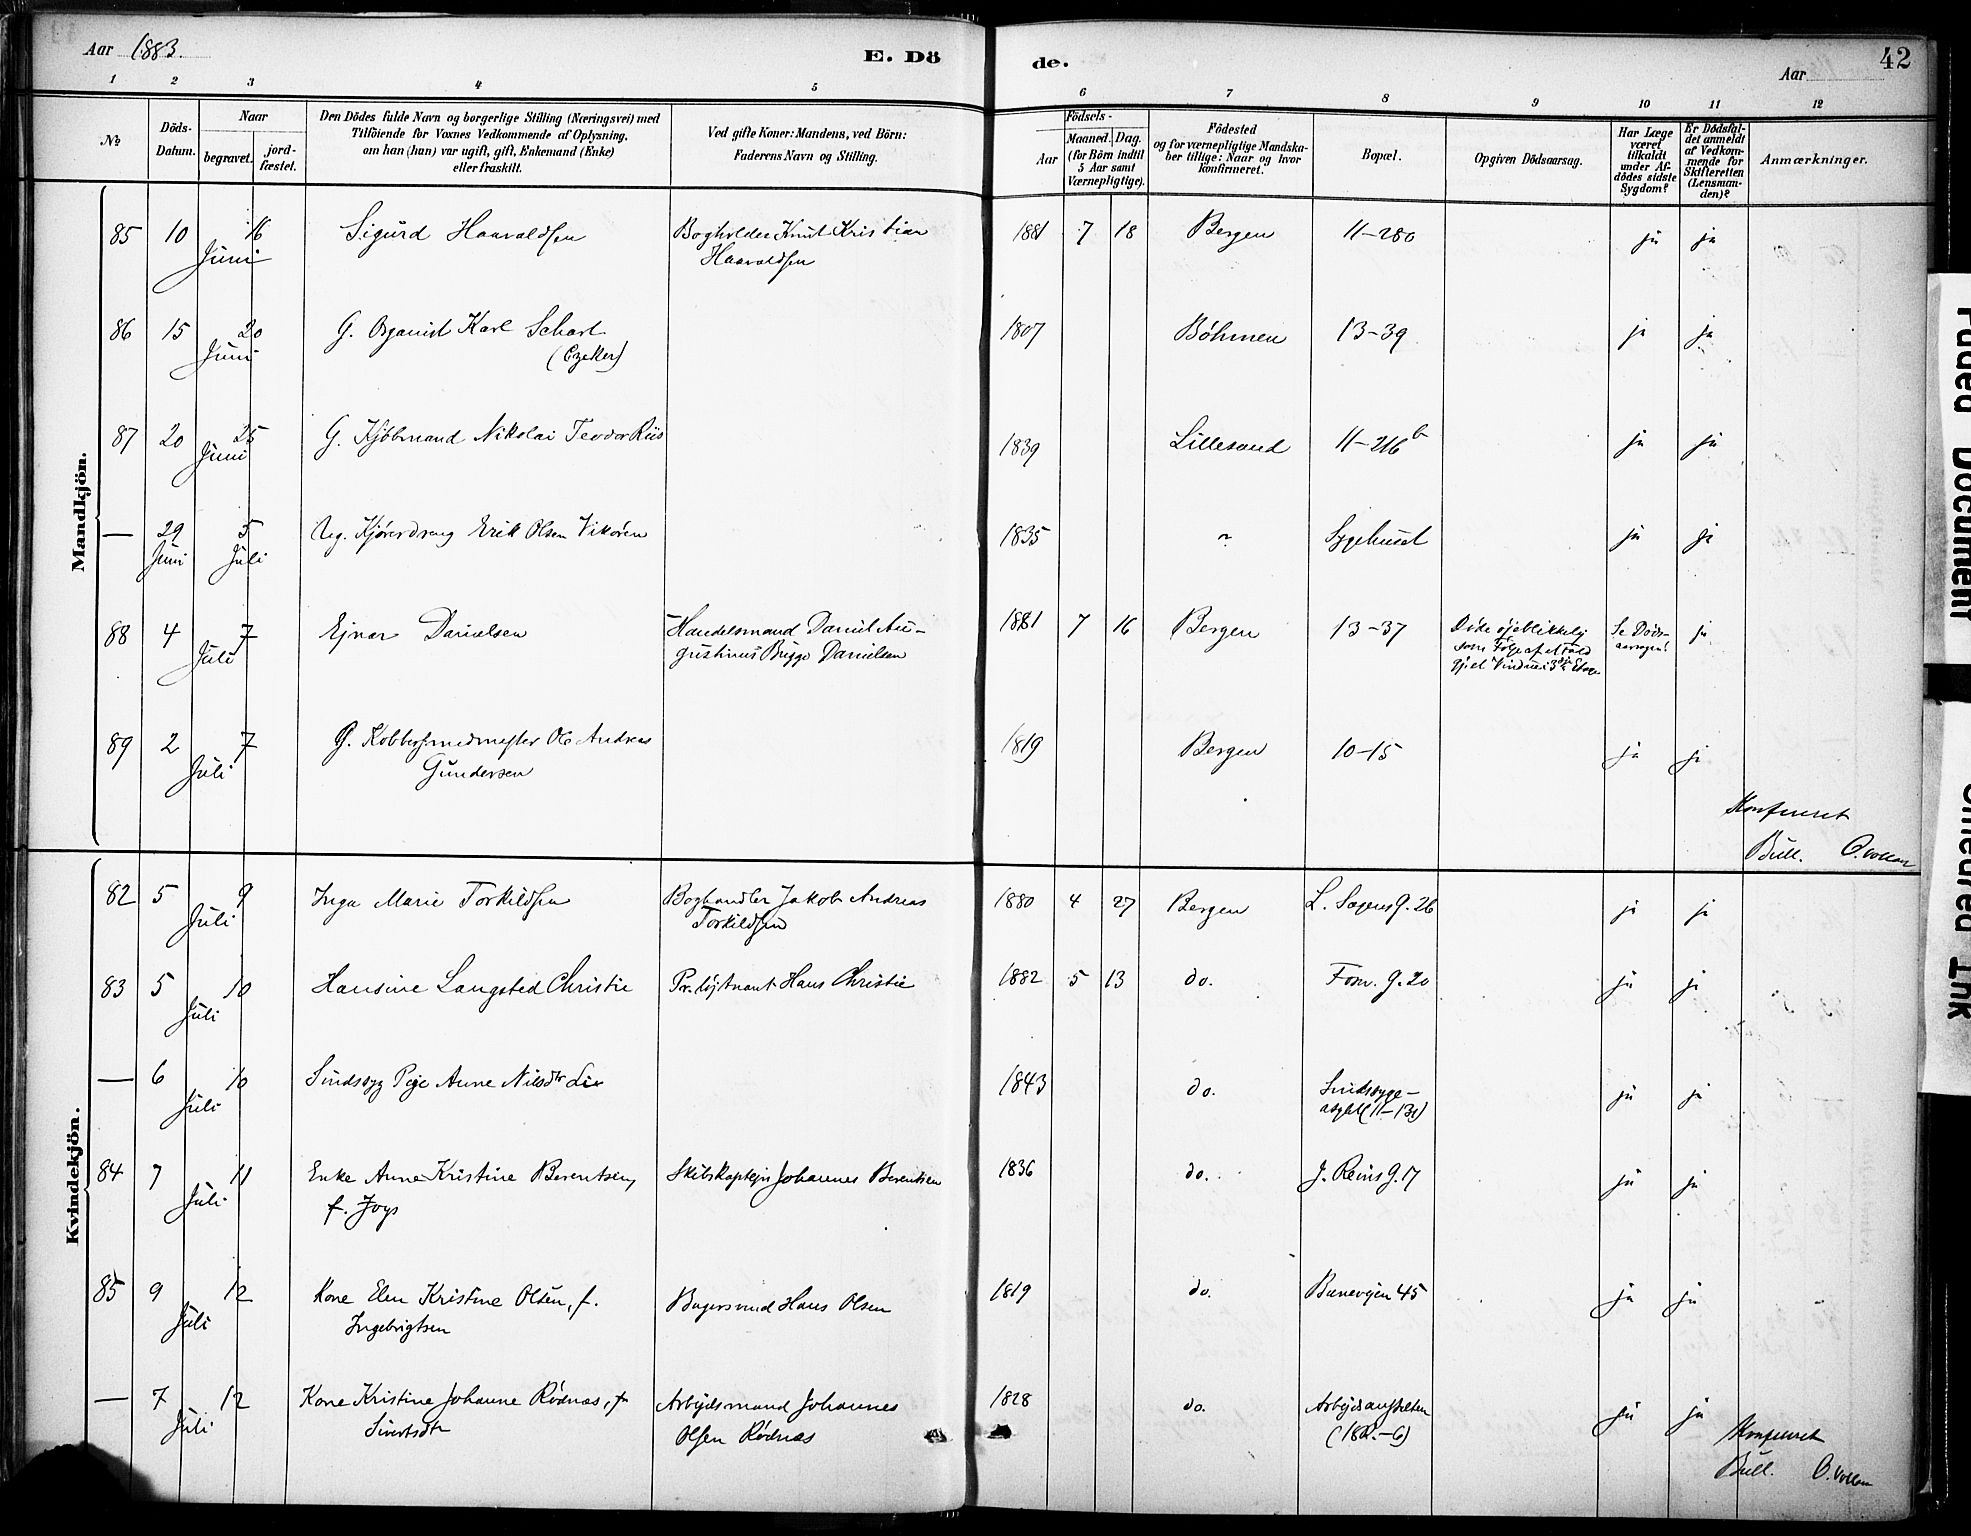 Aar 1883.
E. Dö
de.
Aar
42
1 2 3 4 5 6 7 8 9 10 11 12
№
Döds-
Datum.
Naar
begravet.
jord-
fæstet.
Den Dödes fulde Navn og borgerlige Stilling (Næringsvei) med
Tilföiende for Voxnes Vedkommende af Oplysning,
om han (hun) var ugift, gift, Enkemand (Enke)
eller fraskilt.
Ved gifte Koner: Mandens, ved Börn:
Faderens Navn og Stilling.
Födsels-
Aar
Maaned. Dag.
(for Börn indtil
5 Aar samt
Værnepligtige).
Födested
og for værnepligtige Mandska-
ber tillige: Naar og hvor
konfirmeret.
Bopæl.
Opgiven Dödsaarsag.
Har Læge
været
tilkaldt
under Af-
dödes sidste
Sygdom?
Er Dödsfal-
det anmeldt
af Vedkom-
mende for
Skifteretten
(Lensman-
den)?
Anmærkninger.
Mandkjön.
85 10 16 Sigurd Haavaldsen Bogholder Knut Kristian 1881 7 18 Bergen 11-280 ja ja
Juni Haavaldsen
86 15 20 G. Organist Karl Schart 1807 Böhmen 13-39 ja ja
Juni
87 20 25 G. Kjöbmand Nikolai Teodor Riis 1839 Lillesand 11-216 b ja ja
Juni
— 29 5 Ug. Kjøredreng Erik Olsen Vikøren 1835 ~ Sygehuset ja ja
Juni Juli
88 4 7 Ejnar Danielsen Handelsmand Daniel Au- 1881 7 16 Bergen 13-37 Døde øjeblikkelig Se Døds- ja
Juli gustinus Brigge Danielsen som Følge af et Fald aarsagen!
89 2 7 G. Kobbersmedmester Ole Andreas 1819 Bergen 10-15 ja ja
Juli Gundersen
Konfereret
Bull. O. Vollan
Kvindekjön.
82 5 9 Inga Marie Torkildsen Boghandler Jakob Andreas 1880 4 27 Bergen L. Sagens G. 26 ja ja
Juli Torkildsen
83 5 10 Hansine Langsted Christie Pr. løjtnant Hans Christie 1882 5 13 do. Fosw. G. 20 ja ja
Juli
— 6 10 Sindssyg Pige Anne Nilsdtr Lie 1843 do. Sindssyge-
Juli ja ja
84 7 11 Enke Anne Kristine Berentsen, Skibskaptejn Johannes Berentsen 1836 do. J. Reins G. 17 ja ja
Juli f. Joys
85 9 12 Kone Elen Kristine Olsen, f. Bagersvend Hans Olsen 1819 do. Banevejen 45 ja ja
Juli Ingebrigtsen
— 7 12 Kone Kristine Johanne Rødnæs, f. Arbejdsmand Johannes 1828 do. Arbejdsanstalten ja ja
Juli Sivertsdtr Olsen Rødnæs
Konfereret
Bull. O. Vollan
Faded Document
Smeared Ink